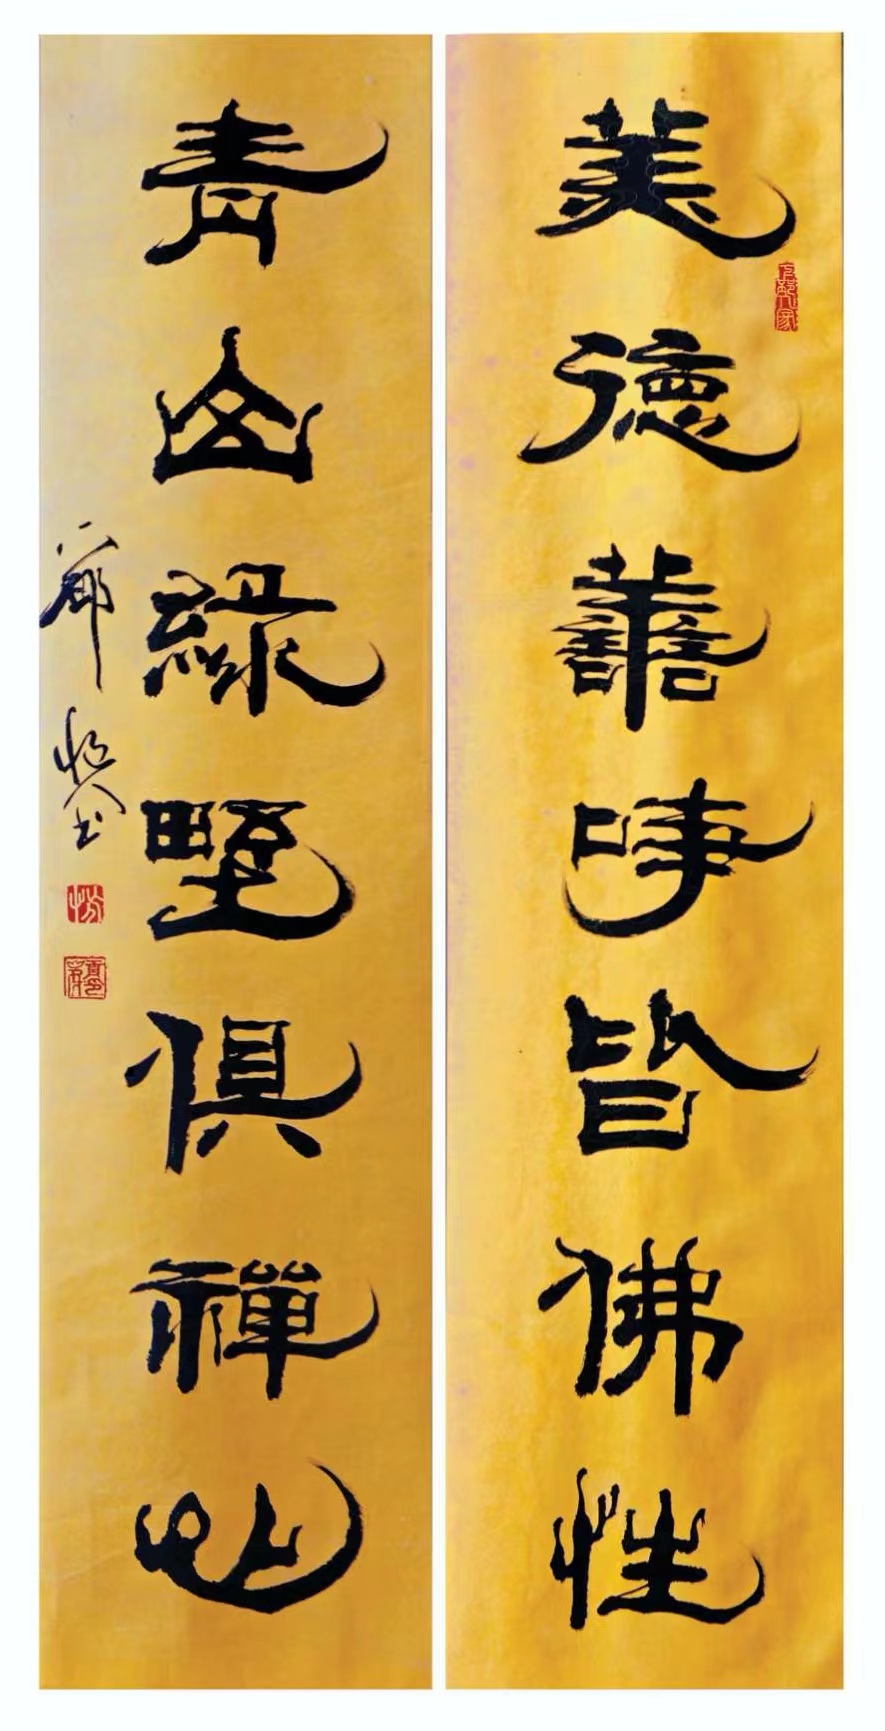 美德善時皆佛性
青山綠野俱禪心